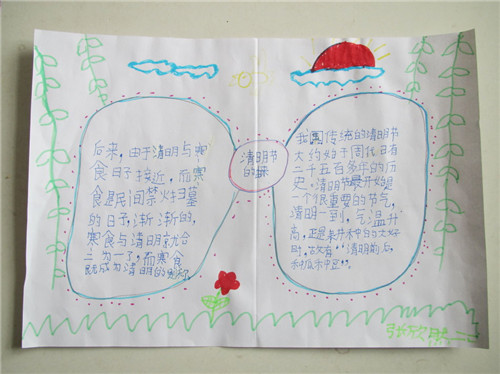 后来，由于清明与寒
食日子接近，而寒
食是民间禁火扫墓
的日子，渐渐的，
寒食与清明就合
二为一了，而寒食
就成为清明的别称
清明节
的
我国传统的清明节
大约始于周代，已有
二千五百多年的历
史。清明节最开始是
一个很重要的节气，
清明一到，气温升
高，正是春耕春种的大好
时，故有“清明前后
种瓜种豆”。
张欣